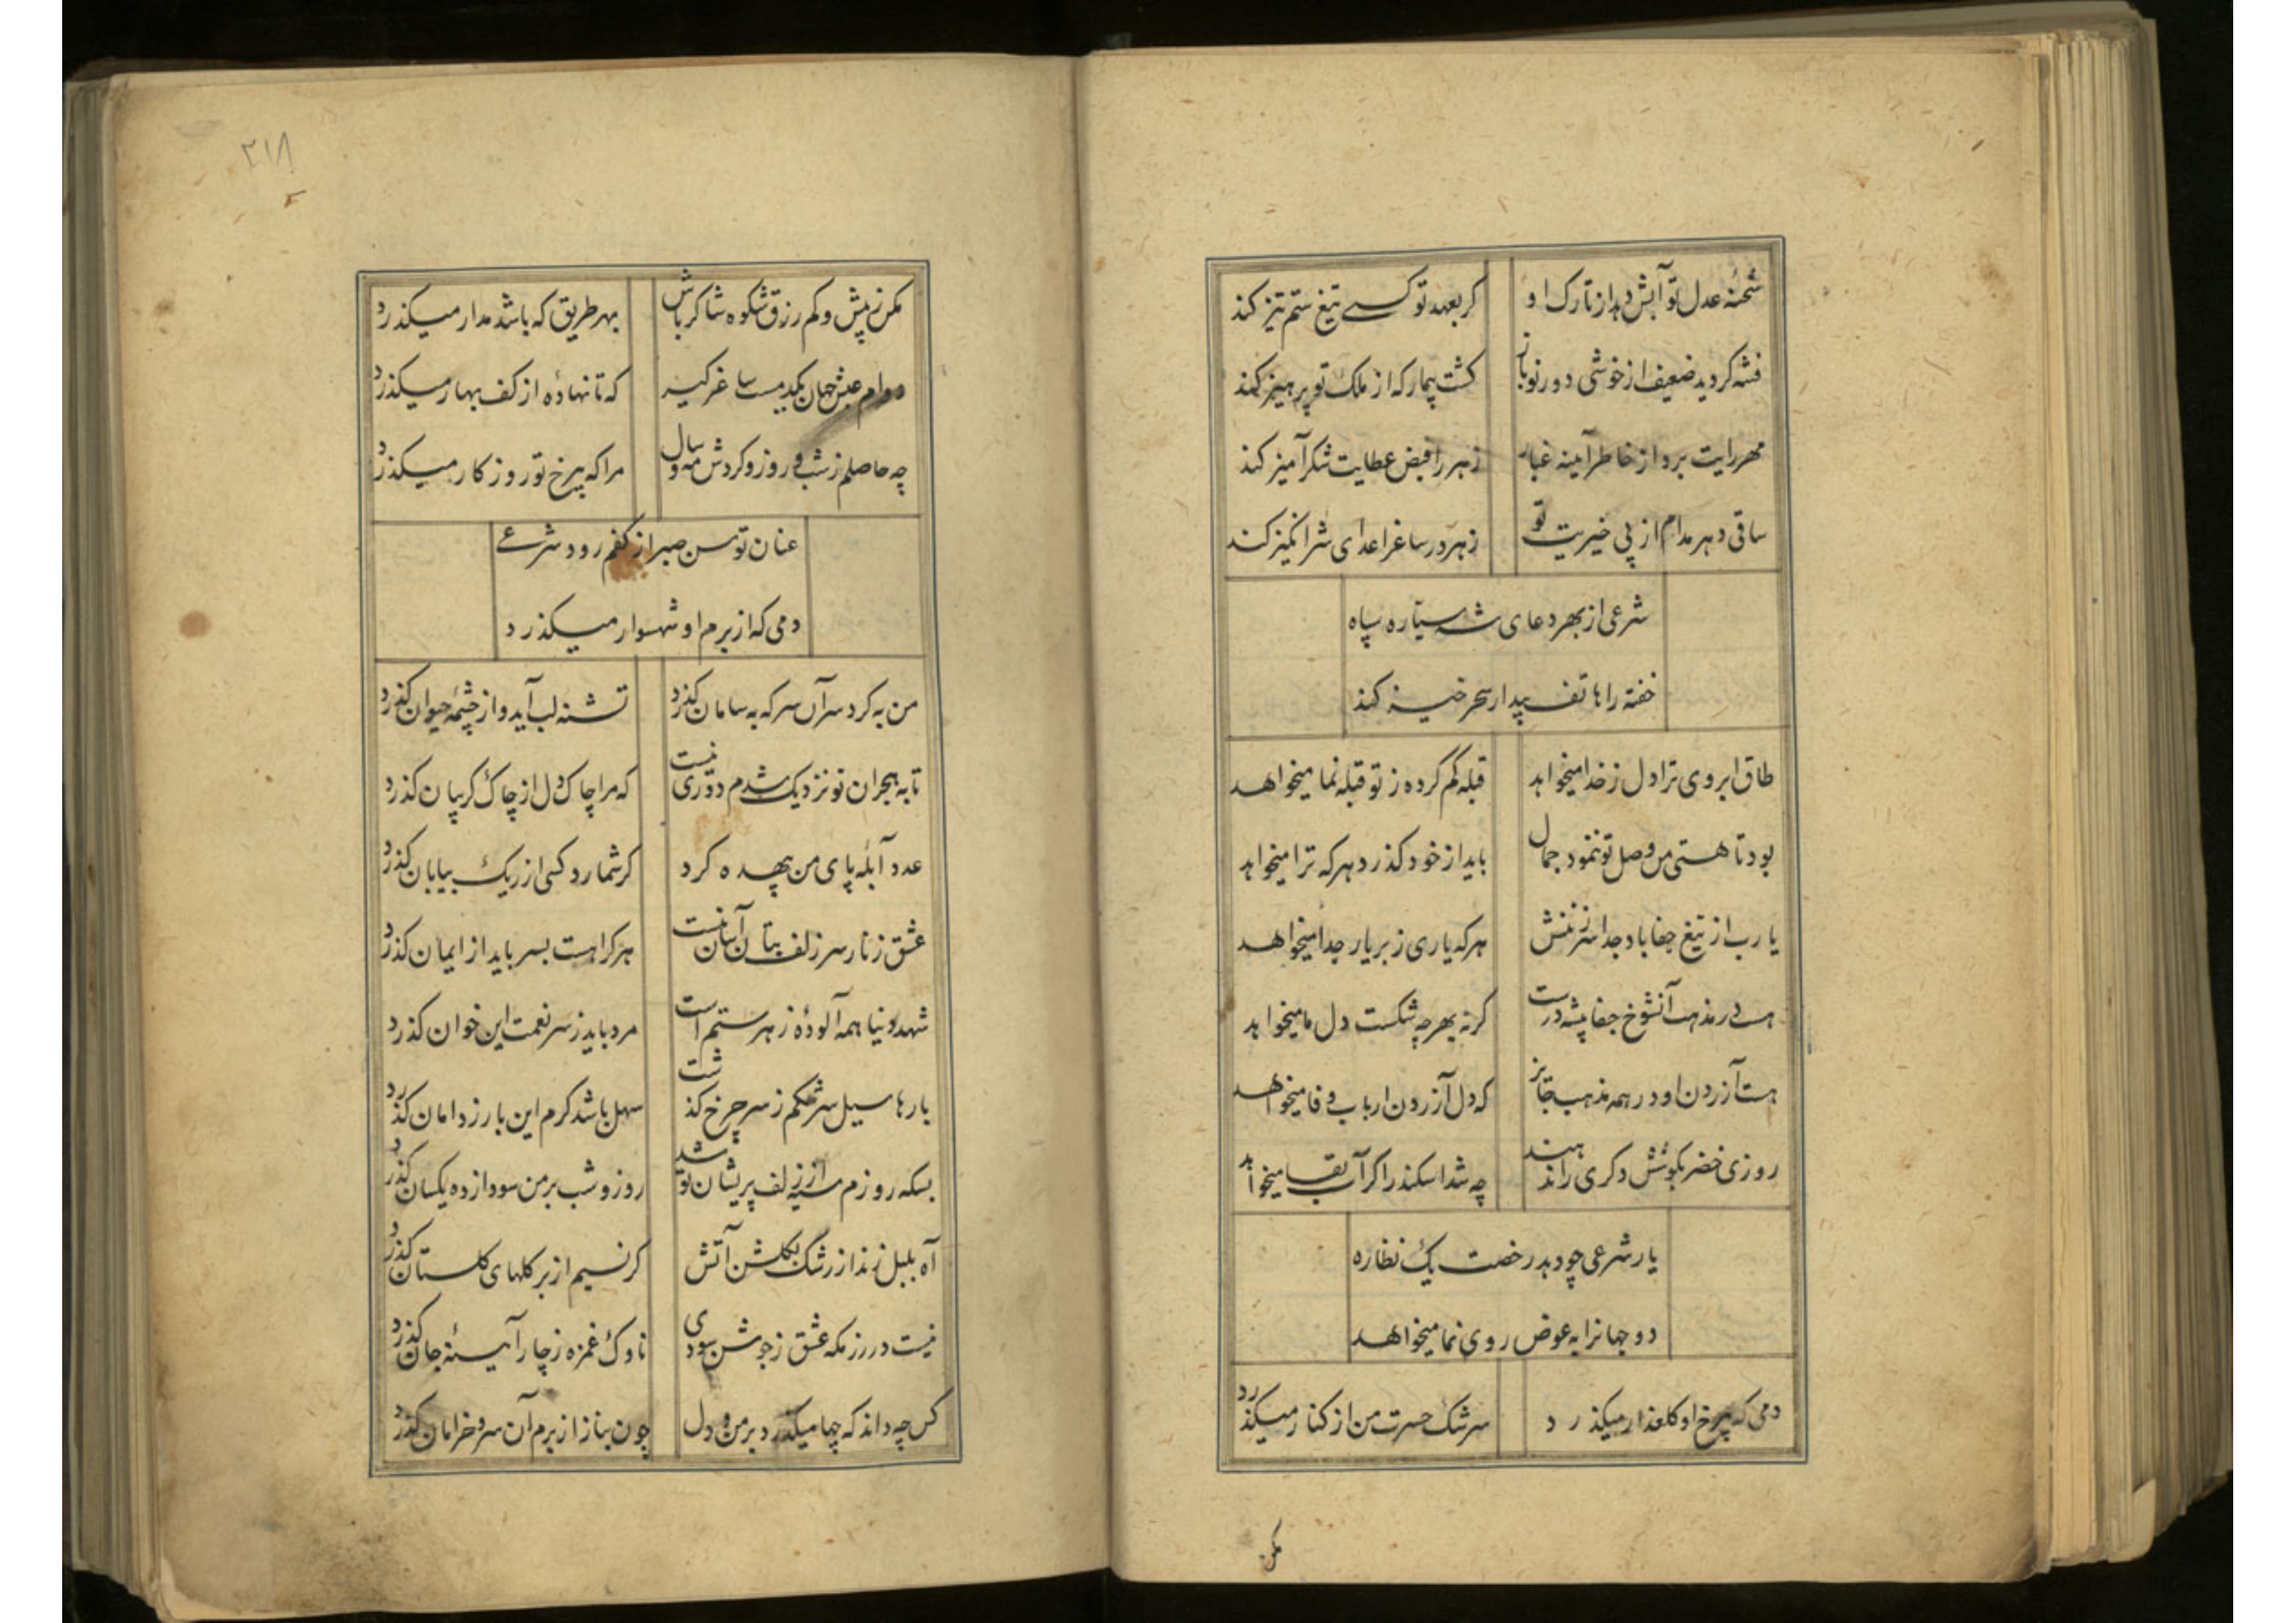 شحنهٔ عدل تو آبش دهد از تارک او
کر بعهد تو کسے تیغ ستم تیز کند
فتنه کردید ضعیف از خوشی دور تو باز
کشت بیمار که از ملک تو پرهیز کند
مهر رایت برد از خاطر آینه غبار
زهر را فیض عطایت شکر آمیز کند
ساقی دهر مدام از پی خیریت تو
زهر در ساغر اعدای شر انکیز کند
شرعی از بهر دعای شه سیاره سپاه
خفته را هاتف بیدار سحر خیز کند
طاق ابروی ترا دل ز خدا میخواهد
قبله کم کرده ز تو قبله نما میخواهد
بود تا هستی من وصل تو ننمود جمال
باید از خود کذرد هر که ترا میخواهد
یا رب از تیغ جفا باد جدا سر ز تنش
هر که یاری ز بر یار جدا میخواهد
هست در مذهب آنشوخ جفا پیشه درست
کر نه بهر چه شکست دل ما میخواهد
هست آزردن او در همه مذهب جایز
که دل آزردن ارباب وفا میخواهد
روزی خضر بکوشش دکری را ندهند
چه شد اسکندر اکر آب بقا میخواهد
یار شرعی چو دهد رخصت یک نظاره
دو جهانرا به عوض روی نما میخواهد
دمی که بیرخ او کلعذار میکذرد
سرشک حسرت من از کنار میکذرد
مکن
۲۱۸
مکن ز بیش و کم رزق شکوه شاکر باش
بهر طریق که باشد مدار میکذرد
دوام عیش جهان یکدمست ساغر کیر
که تا نهادهٔ از کف بهار میکذرد
چه حاصلم ز شب و روز و کردش مه و سال
مرا که بیرخ تو روزکار میکذرد
عنان توسن صبر از کفم رود شرعے
دمی که از برم او شهسوار میکذرد
من به کرد سر آن سر که به سامان کذرد
تشنه لب آید و از چشمهٔ حیوان کذرد
تا به هجران تو نزدیک شدم دوری نیست
که مرا چاک دل از چاک کریبان کذرد
عدد آبلهٔ پای من بیهده کرد
کر شمارد کسی از ریک بیابان کذرد
عشق زنار سر زلف بتان آسان نیست
هر کرا هست بسر باید از ایمان کذرد
شهد دنیا همه آلودهٔ زهر ستم است
مرد باید ز سر نعمت این خوان کذرد
بارها سیل سرشکم ز سر چرخ کذشت
سهل باشد کرم این بار ز دامان کذرد
بسکه روزم سیه از زلف پریشان تو شد
روز و شب بر من سودا زده یکسان کذرد
آه بلبل زند از رشک بکلشن آتش
کر نسیم از بر کلهای کلستان کذرد
نیست در رزمکه عشق ز جوشن سودی
ناوک غمزه ز چار آیینهٔ جان کذرد
کس چه داند که چها میکذرد بر من و دل
چون بناز از برم آن سرو خرامان کذرد